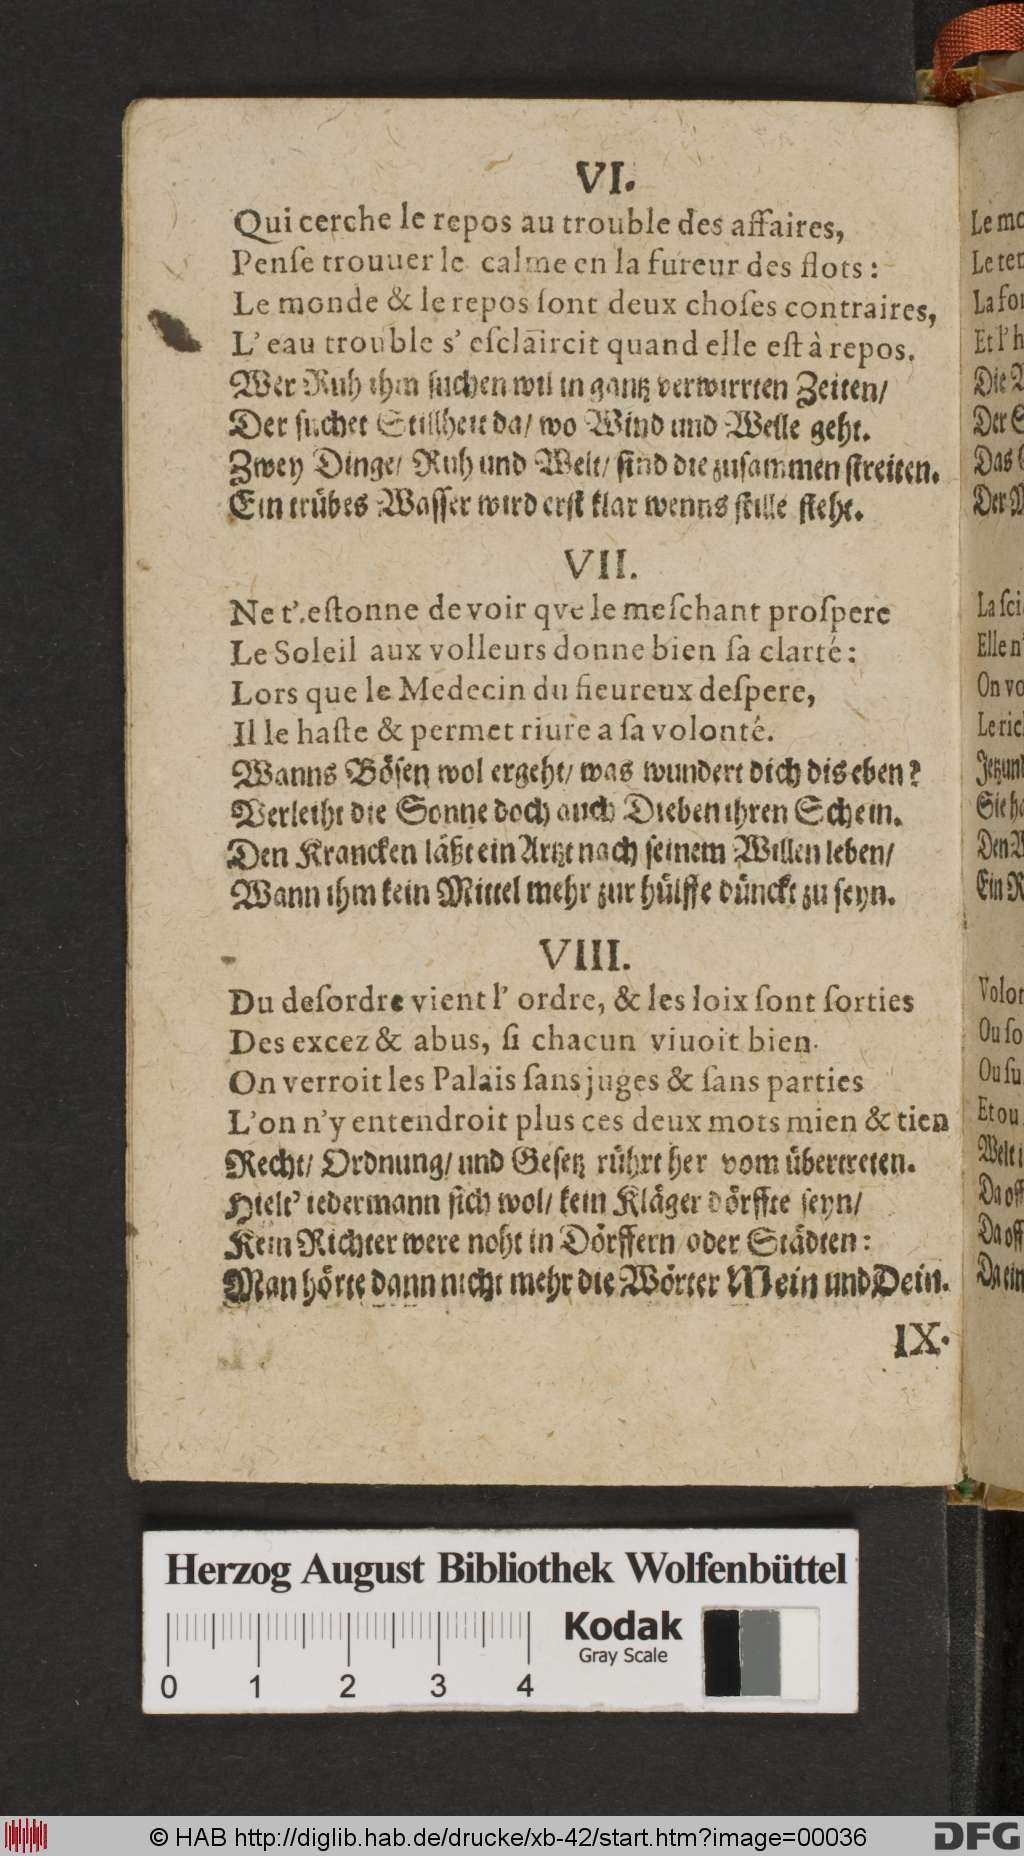 VI.
Qui cerche le repos au trouble des affaires,
Penſe trouuer le calme en la fureur des flots :
Le monde & le repos ſont deux choſes contraires,
L' eau trouble s' eſclaircit quand elle eſt à repos.
Wer Ruh ihm ſuchen wil in gantz verwirrten Zeiten/
Der ſuchet Stillheit da/ wo Wind und Welle geht.
Zwey Dinge/ Ruh und Welt/ ſind die zuſammen ſtreiten.
Ein trübes Waſſer wird erſt klar wenns ſtille ſteht.
VII.
Ne t'.eſtonne de voir qve le meſchant proſpere
Le Soleil aux volleurs donne bien ſa clarté :
Lors que le Medecin du fieureux deſpere,
Il le haſte & permet riure a ſa volonté.
Wanns Böſen wol ergeht/ was wundert dich dis eben?
Verleiht die Sonne doch auch Dieben ihren Schein.
Den Krancken läßt ein Artzt nach ſeinem Willen leben/
Wann ihm kein Mittel mehr zur hülffe dünckt zu ſeyn.
VIII.
Du deſordre vient l' ordre, & les loix ſont ſorties
Des excez & abus, ſi chacun viuoit bien.
On verroit les Palais ſans juges & ſans parties
L'on n'y entendroit plus ces deux mots mien & tien
Recht/ Ordnung/ und Geſetz rührt her vom übertreten.
Hielt' iedermann ſich wol/ kein Kläger dörffte ſeyn/
Kein Richter were noht in Dörffern oder Städten :
Man hörte dann nicht mehr die Wörter Mein und Dein.
IX.
Le mo
Le ter
La fou
Et l'h
Die
Der
Das
Der
La ſci
Elle n'
On vo
Le ric
Jetzund
Sie ha
Den
Ein
Volon
Ou ſo
Ou ſu
Et ou
Welt
Da off
Da off
Da ein
Herzog August Bibliothek Wolfenbüttel
0 1 2 3 4
Kodak
Gray Scale
© HAB http://diglib.hab.de/drucke/xb-42/start.htm?image=00036
DFG